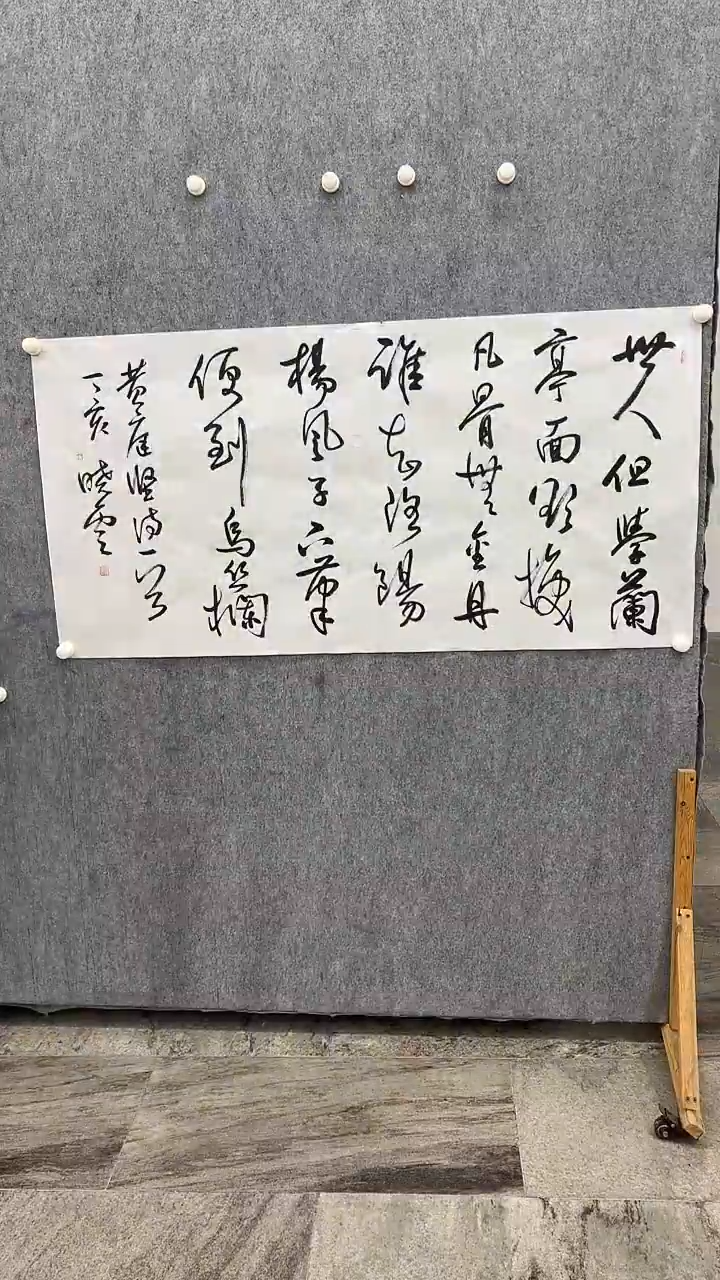 世人但學蘭
亭面欲換
凡骨無金丹
誰知洛陽
楊風子下筆
便到烏絲欄
黃庭堅詩一首
丁亥 曉雲